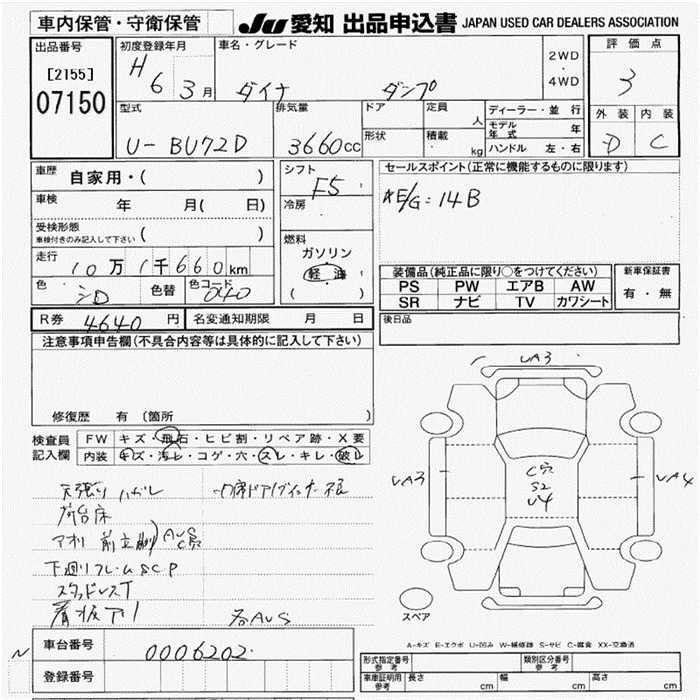 車内保管・守衛保管
JU 愛知 出品申込書 JAPAN USED CAR DEALERS ASSOCIATION
出品番号
[2155]
07150
初度登録年月
H 6 3月
車名・グレード
ダイナ ダンプ
2WD
・
4WD
評価点
3
外装 内装
D C
型式
U-BU72D
排気量
3660cc
ドア
形状
定員 人
積載 kg
ディーラー・並行
モデル年式 年
ハンドル 左・右
車歴 自家用・( )
車検 年 月( 日)
受検形態
車検付きのみ記入して下さい ( )
走行 10万1千660km
色 シロ 色替 色コード 040
シフト
F5
冷房
燃料
ガソリン
軽油
( )
セールスポイント(正常に機能するものに限ります)
E/G:14B
装備品(純正品に限り○をつけてください)
PS PW エアB AW
SR ナビ TV カワシート
新車保証書
有・無
R券 4640円 名変通知期限 月 日
後日品
注意事項申告欄(不具合内容等は具体的に記入して下さい)
修復歴 有 〔箇所 〕
検査員記入欄
FW キズ・飛石・ヒビ割・リペア跡・X要
内装 キズ・汚レ・コゲ・穴・スレ・キレ・破レ
天張リ ハガレ
荷台床
アオリ
AUS
C穴
下廻リフレーム SCP
スタッドレスT
看板アリ
各AUS
UA3
UA3
UA4
C穴
S2
U4
スペア
A-キズ E-エクボ U-凹み W-補修跡 S-サビ C-腐食 XX-交換済
車台番号 0006202
登録番号
N
形式指定番号
参考
類別区分番号
参考
車庫証明用
参考
長さ cm 幅 cm 高さ cm